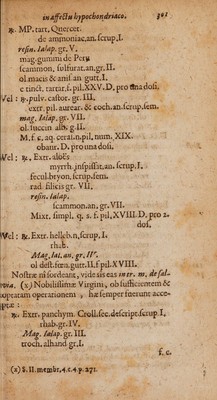 in affectu hypochondriaco. 301
℞. MP. tart. Quercet.
de ammoniac, an. scrup. I.
resin. Ialap. gr. V.
mag. gummi de Peru
scammon, sulfurat. an. gr. II.
ol. macis & anis. an. gutt. I.
c tinct. tartar. f. pil. XXV. D. pro una dosi.
Vel: ℞. pulv. castor. gr. III.
extr. pil. aurear. & coch. an. scrup. sem.
mag. Ialap. gr. VII.
ol. succin. alb. g. II.
M. f. c. aq. cerasi. n. pil. num. XIX.
obaur. D. pro una dosi.
Vel: ℞. Extr. aloës
myrrh. inspissat. an. scrup. I.
fecul. bryon. scrup. sem.
rad. filicis gr. VII.
resin. Ialap.
scammon. an. gr. VII.
Mixt. simpl. q. s. f. pil. XVIII. D. pro 2.
dos.
Vel: ℞. Extr. helleb. n. scrup. I.
rhab.
Mag. Ial. an. gr. IV.
ol. dest. fœn. gutt. II. f. pil. XVIII.
Nostræ ni sordeant, vide sis eas in tr. m. de sal-
via. (x) Nobilissimæ Virgini, ob sufficientem &
optatam operationem, hæ semper fuerunt acce-
ptæ:
℞. Extr. panchym. Croll. sec. descript. scrup. I.
rhab. gr. IV.
Mag. Ialap. gr. III.
troch. alhand. gr. I.
f. c.
(x) S. II. membr. 4. c. 4. p. 271.